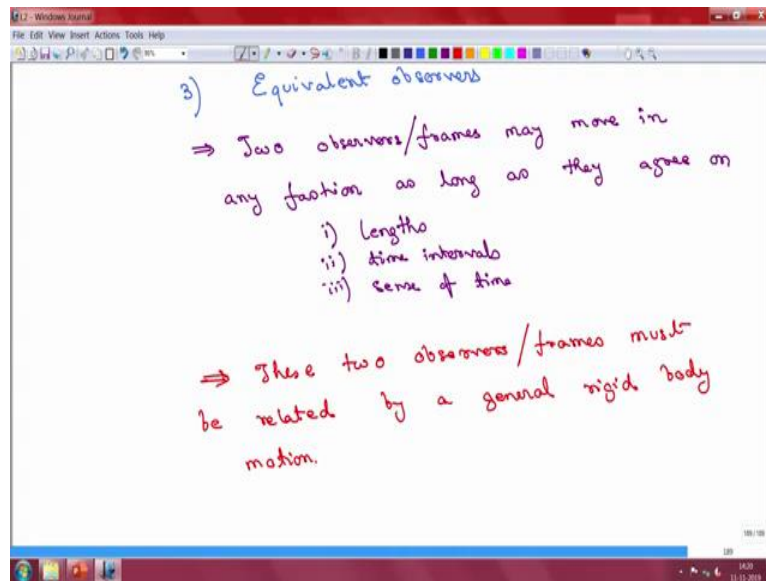 L2 - Windows Journal
File Edit View Insert Actions Tools Help
3) Equivalent observers
⇒ Two observers/frames may move in
any fashion as long as they agree on
i) lengths
ii) time intervals
iii) sense of time
⇒ These two observers/frames must
be related by a general rigid body
motion.
189/189
189
14:20
11-11-2019